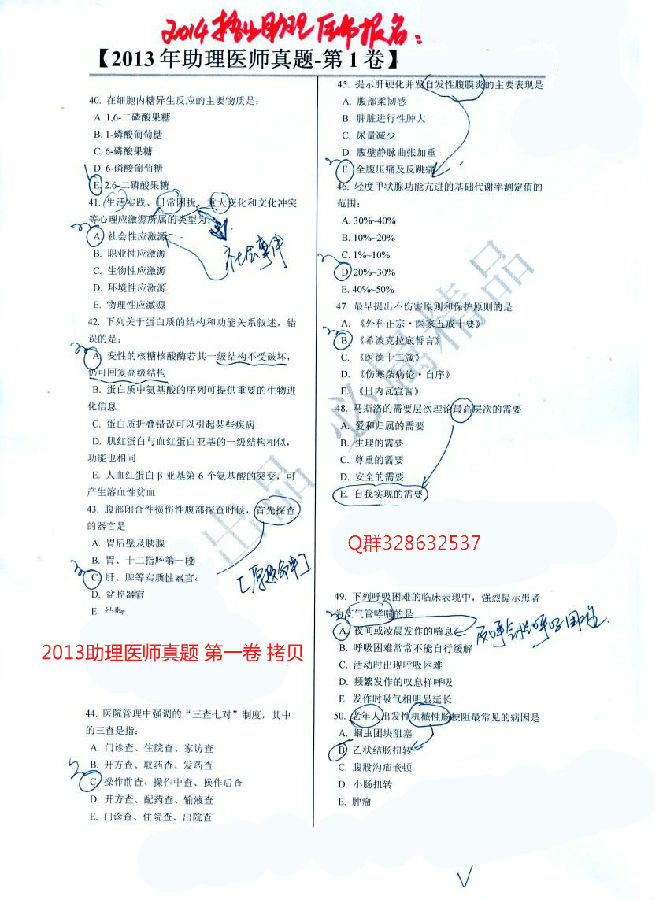 2014 助理医师报名:
【2013年助理医师真题-第1卷】
40. 在细胞内糖异生反应的主要物质是:
A 1,6-二磷酸果糖
B. 1-磷酸葡萄糖
C. 6-磷酸果糖
D 6-磷酸葡萄糖
E. 2,6-二磷酸果糖
41. 生活实践、日常困扰、重大变化和文化冲突
等心理应激源所属的类型为:
A 社会性应激源
B. 职业性应激源
C. 生物性应激源
D. 环境性应激源
E. 物理性应激源
社会事件
42. 下列关于蛋白质的结构和功能关系叙述, 错
误的是:
A 变性的核糖核酸酶若其一级结构不受破坏,
仍可回复高级结构
B. 蛋白质中氨基酸的序列可提供重要的生物进
化信息
C. 蛋白质折叠错误可以引起某些疾病
D. 肌红蛋白与血红蛋白亚基的一级结构相似,
功能也相同
E. 人血红蛋白β亚基第 6 个氨基酸的突变, 可
产生溶血性贫血
43. 腹部闭合性损伤性腹部探查时候, 首先探查
的器官是
A 胃后壁及胰腺
B. 胃、十二指肠第一段
C. 肝、脾等实质性器官
D. 盆腔器官
E
2013助理医师真题 第一卷 拷贝
44. 医院管理中强调的“三查七对”制度, 其中
的三查是指:
A. 门诊查、住院查、家访查
B. 开方查、取药查、发药查
C. 操作前查、操作中查、操作后查
D. 开方查、配药查、输液查
E. 门诊查、住院查、出院查
45. 提示肝硬化并发自发性腹膜炎的主要表现是
A. 腹部柔韧感
B. 脾脏进行性肿大
C. 尿量减少
D. 腹壁静脉曲张加重
E. 全腹压痛及反跳痛
46. 轻度甲状腺功能亢进的基础代谢率测定值的
范围:
A. 30%~40%
B. 10%~20%
C. 1%~10%
D. 20%~30%
E. 40%~50%
47. 最早提出不伤害原则和保护原则的是
A. 《外科正宗·医家五戒十要》
B. 《希波克拉底誓言》
C. 《医德十二箴》
D. 《伤寒杂病论·自序》
E. 《日内瓦宣言》
48. 马斯洛的需要层次理论最高层次的需要
A. 爱和归属的需要
B. 生理的需要
C. 尊重的需要
D. 安全的需要
E. 自我实现的需要
Q群328632537
49. 下列呼吸困难的临床表现中, 强烈提示患者
为支气管哮喘的是
A. 夜间或凌晨发作的喘息
B. 呼吸困难常常不能自行缓解
C. 活动时出现呼吸困难
D. 频繁发作的叹息样呼吸
E. 发作时吸气相明显延长
50. 老年人出发性机械性肠梗阻最常见的病因是
A. 蛔虫团块阻塞
B. 乙状结肠扭转
C. 腹股沟疝嵌顿
D. 小肠扭转
E. 肿瘤
出品 必属精品